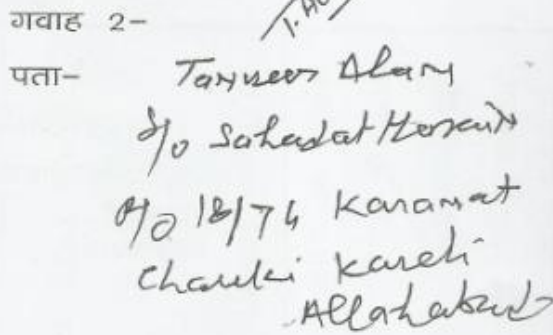 गवाह 2-
पता- Tanveer Alam
S/o Sahadat Hossain
R/O 18/74 Karamat
Chauki Kareli
Allahabad